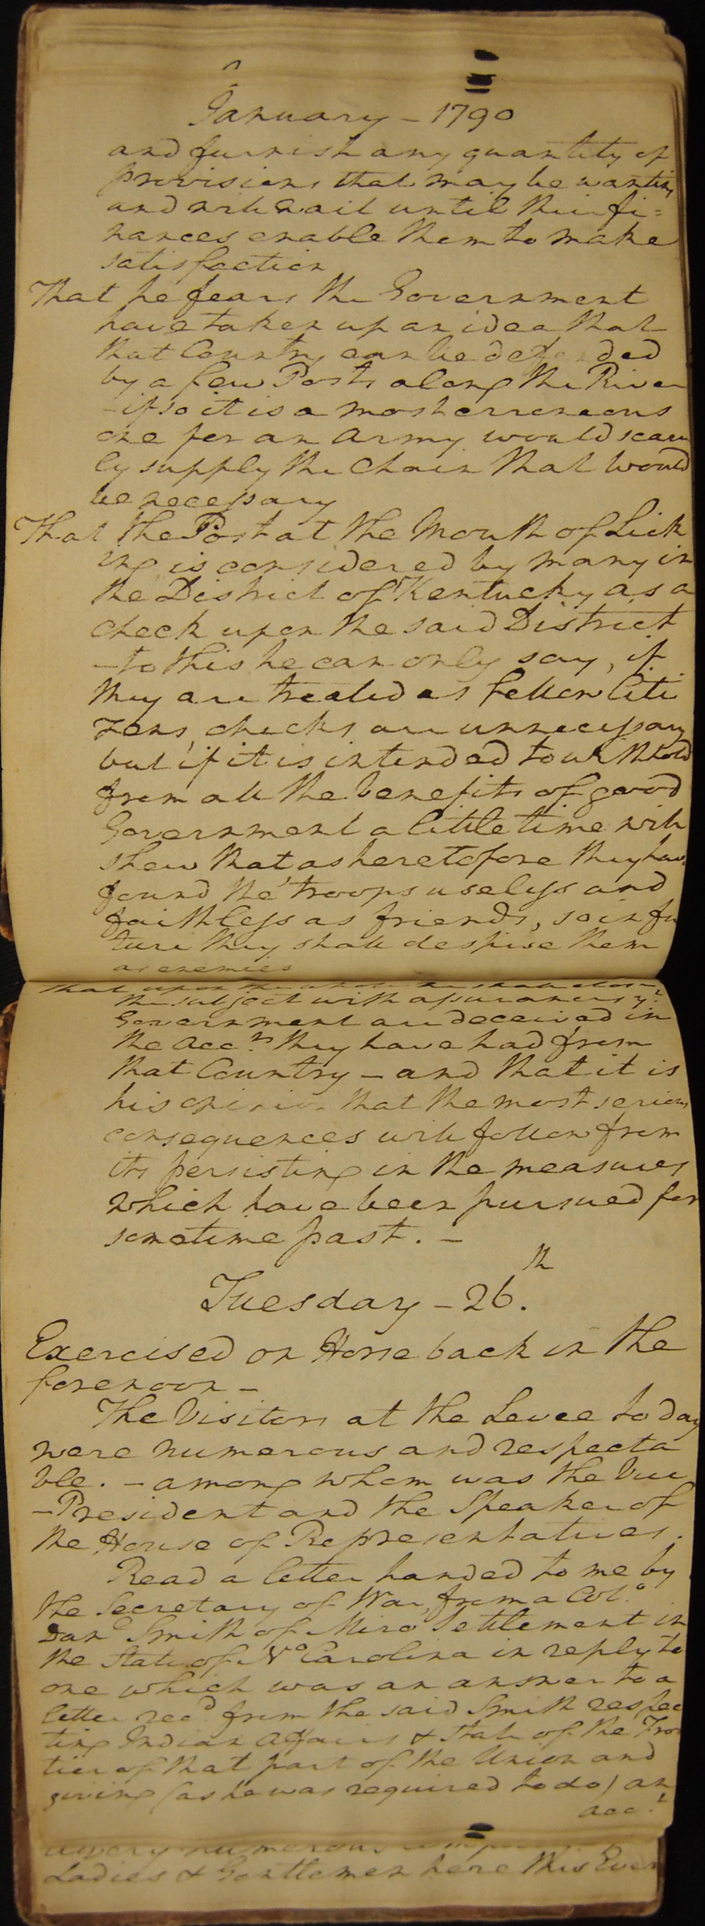 January - 1790
and furnish any quantity of
provisions that may be wanting
and will wait until their fi=
nances enable them to make
satisfaction
That he fears the Government
have taken up an idea that
that Country can be defended
by a few Posts along the River
- if so it is a most erroneous
one for an Army would scarce
ly supply the Chain that would
be necessary
That the Post at the Mouth of Lick
ing is considered by many in
the District of Kentucky as a
check upon the said District
- to this he can only say, if
they are treated as fellow Citi
zens, checks are unnecessary
but if it is intended to withhold
from all the benefits of good
Government a little time will
shew that as heretofore they have
found the troops useless and
faithless as friends, so in fu
ture they shall despise them
as enemies
that upon the whole he shall close
the subject with assurances yt
Government are deceived in
the Acc.ts they have had from
that Country - and that it is
his opinion that the most serious
consequences will follow from
its persisting in the measures
which have been pursued for
sometime past. -
Tuesday - 26.th
Exercised on Horseback in the
forenoon -
The Visitors at the Levee to day
were numerous and respecta
ble. - among whom was the Vice
- President and the Speaker of
the House of Representatives.
Read a letter handed to me by
the Secretary of War, from a Col.o
Dan.l Smith of Miro Settlement in
the State of N.o Carolina in reply to
one which was an answer to a
letter rec.d from the said Smith respec
ting Indian Affairs & State of the Fron
tier of that part of the Union and
giving (as he was required to do) an
acc.t
a very numerous company of
Ladies & Gentlemen here this Even